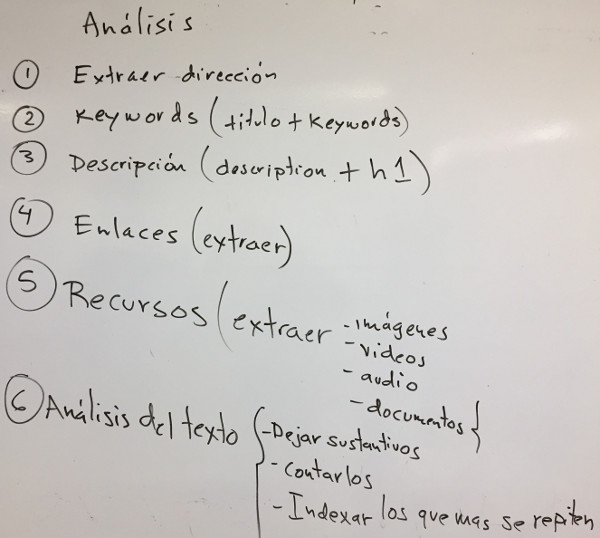 Análisis
1 Extraer dirección
2 Keywords (titulo + Keywords)
3 Descripción (description + h1)
4 Enlaces (extraer)
5 Recursos (extraer - imágenes
- videos
- audio
- documentos }
6 Análisis del texto { - Dejar sustantivos
- Contarlos
- Indexar los que mas se repiten